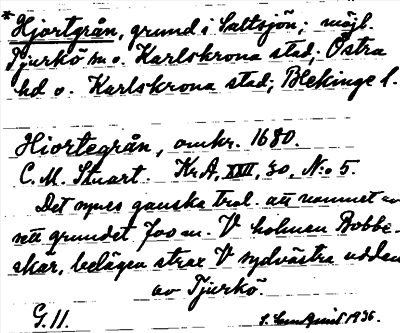 * Hjortgrån, grund i Saltsjön; möjl.
Tjurkö sn o. Karlskrona stad; Östra
hd o. Karlskrona stad; Blekinge l.
Hiortegrån, omkr. 1680.
C. M. Stuart. Kr.A, XXII, 30, N:o 5.
Det synes ganska trol. att namnet av
sett grundet 700 m. V holmen Bobbe-
skär, belägen strax V sydvästra udden
av Tjurkö.
G. 11.
1936.